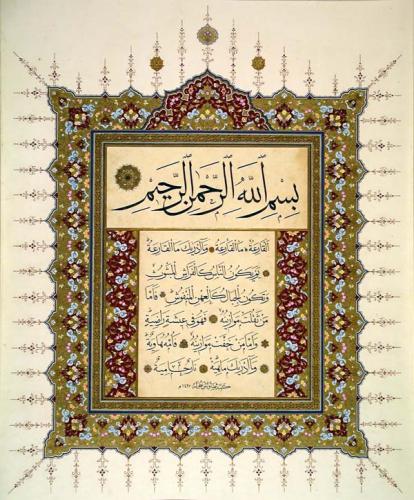 بِسْمِ اللهِ الرَّحْمٰنِ الرَّحِيْمِ
اَلْقَارِعَةُ مَا الْقَارِعَةُ وَمَا اَدْرٰيكَ مَا الْقَارِعَةُ
يَوْمَ يَكُونُ النَّاسُ كَالْفَرَاشِ الْمَبْثُوثِ
وَتَكُونُ الْجِبَالُ كَالْعِهْنِ الْمَنْفُوشِ فَاَمَّا
مَنْ ثَقُلَتْ مَوَازِينُهُ فَهُوَ فِي عِيشَةٍ رَاضِيَةٍ
وَاَمَّا مَنْ خَفَّتْ مَوَازِينُهُ فَاُمُّهُ هَاوِيَةٌ
وَمَا اَدْرٰيكَ مَاهِيَهْ نَارٌ حَامِيَةٌ